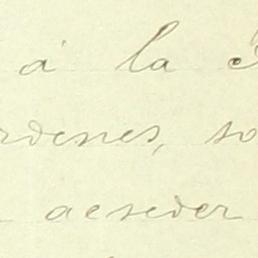 á la
rdenes, so
aeseder